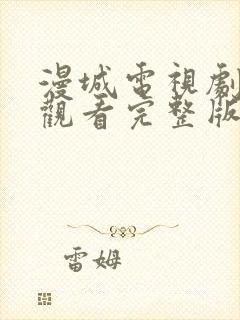 漫城電視劇
觀看完整版
雷姆